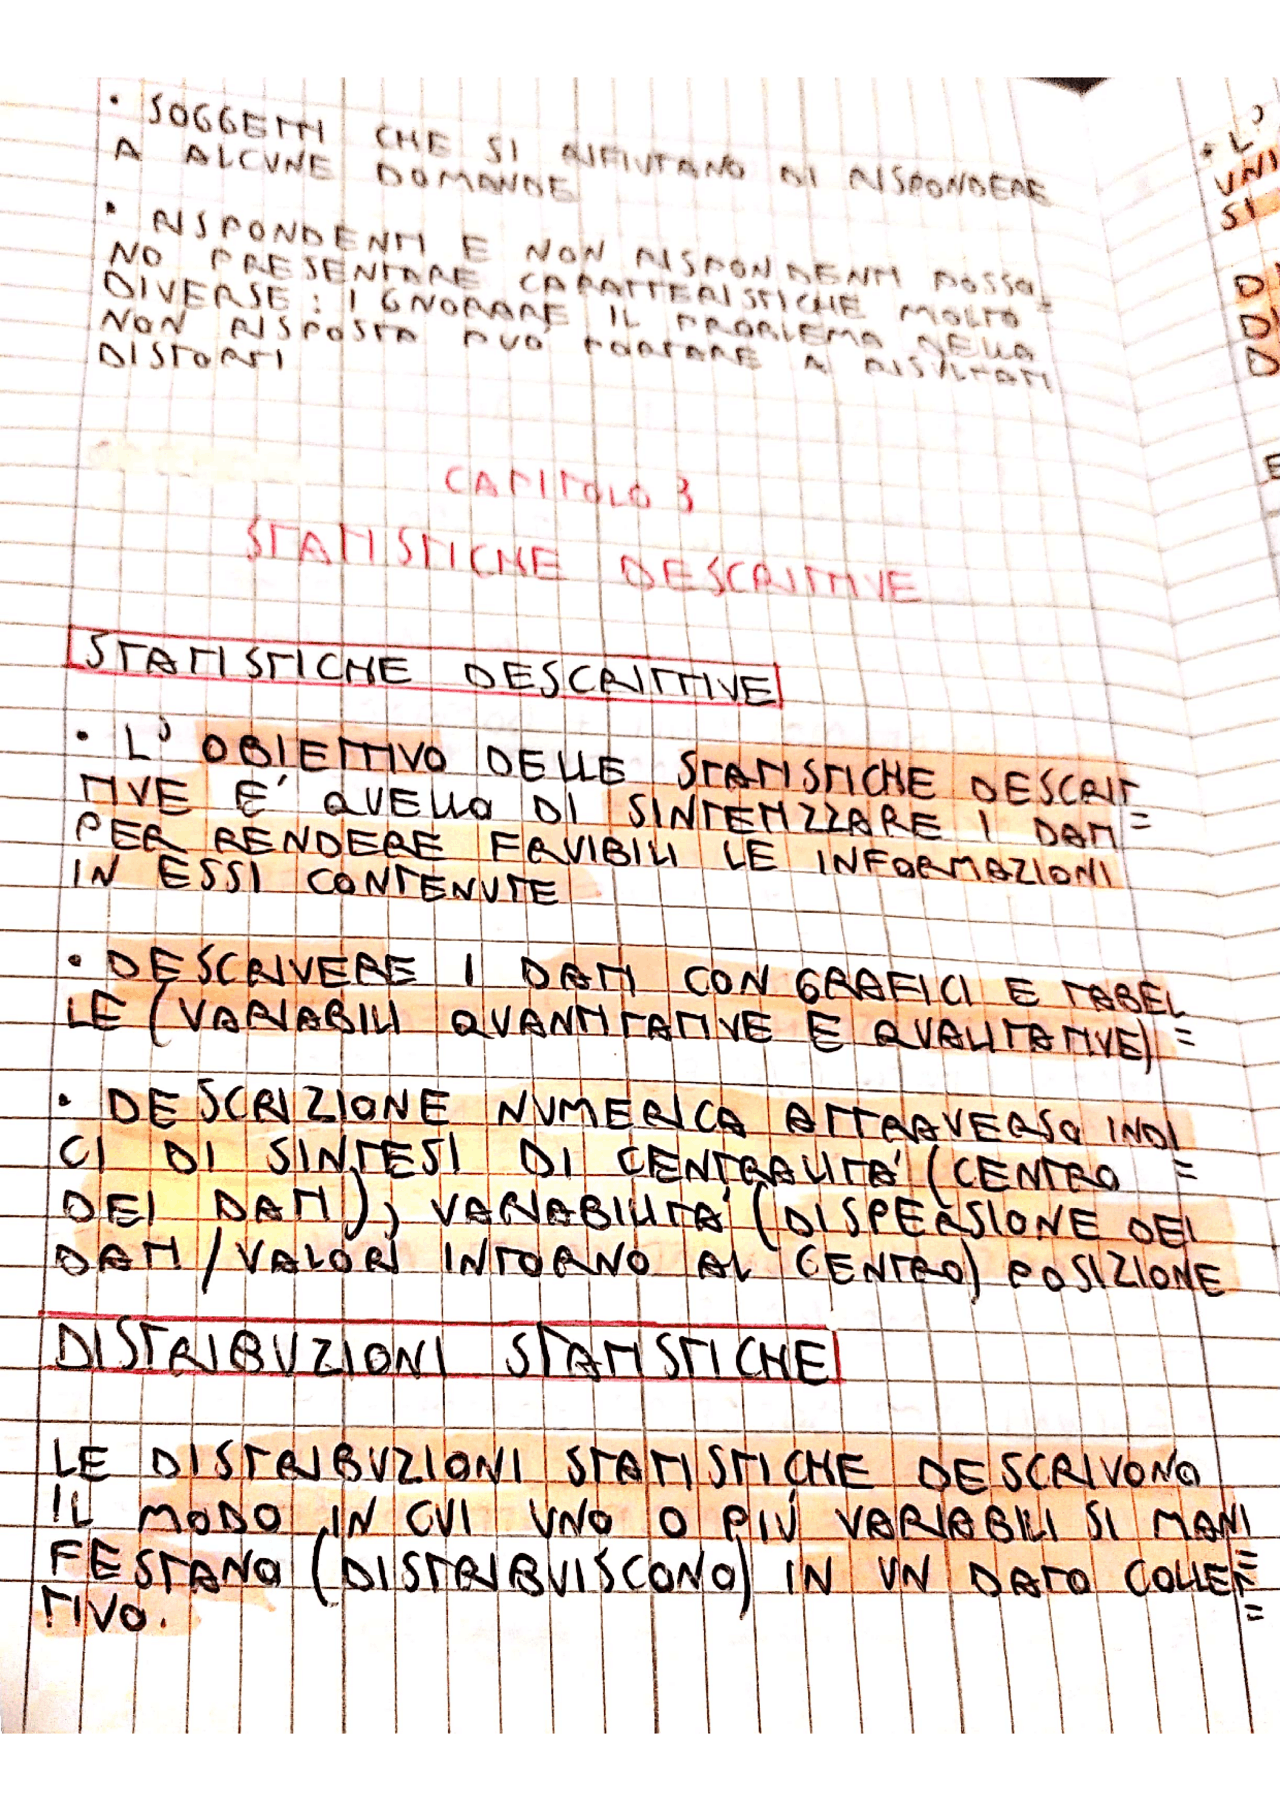 • SOGGETTI CHE SI RIFIUTANO DI RISPONDERE
A ALCUNE DOMANDE
• RISPONDENTI E NON RISPONDENTI POSSO=
NO PRESENTARE CARATTERISTICHE MOLTO
DIVERSE: IGNORARE IL PROBLEMA DELLA
NON RISPOSTA PUÓ PORTARE A RISULTATI
DISTORTI
CAPITOLO 3
STATISTICHE DESCRITTIVE
STATISTICHE DESCRITTIVE
• L' OBIETTIVO DELLE STATISTICHE DESCRIT=
TIVE E' QUELLO DI SINTETIZZARE I DATI
PER RENDERE FRUIBILI LE INFORMAZIONI
IN ESSI CONTENUTE
• DESCRIVERE I DATI CON GRAFICI E TABEL=
LE (VARIABILI QUANTITATIVE E QUALITATIVE)
• DESCRIZIONE NUMERICA ATTRAVERSO INDI=
CI DI SINTESI DI CENTRALITA' (CENTRO
DEI DATI), VARIABILITA' (DISPERSIONE DEI
DATI/VALORI INTORNO AL CENTRO) POSIZIONE
DISTRIBUZIONI STATISTICHE
LE DISTRIBUZIONI STATISTICHE DESCRIVONO
IL MODO IN CUI UNO O PIÚ VARIABILI SI MANI=
FESTANO (DISTRIBUISCONO) IN UN DATO COLLET=
TIVO.
• L'
UNI
SI
D
DI
D
E